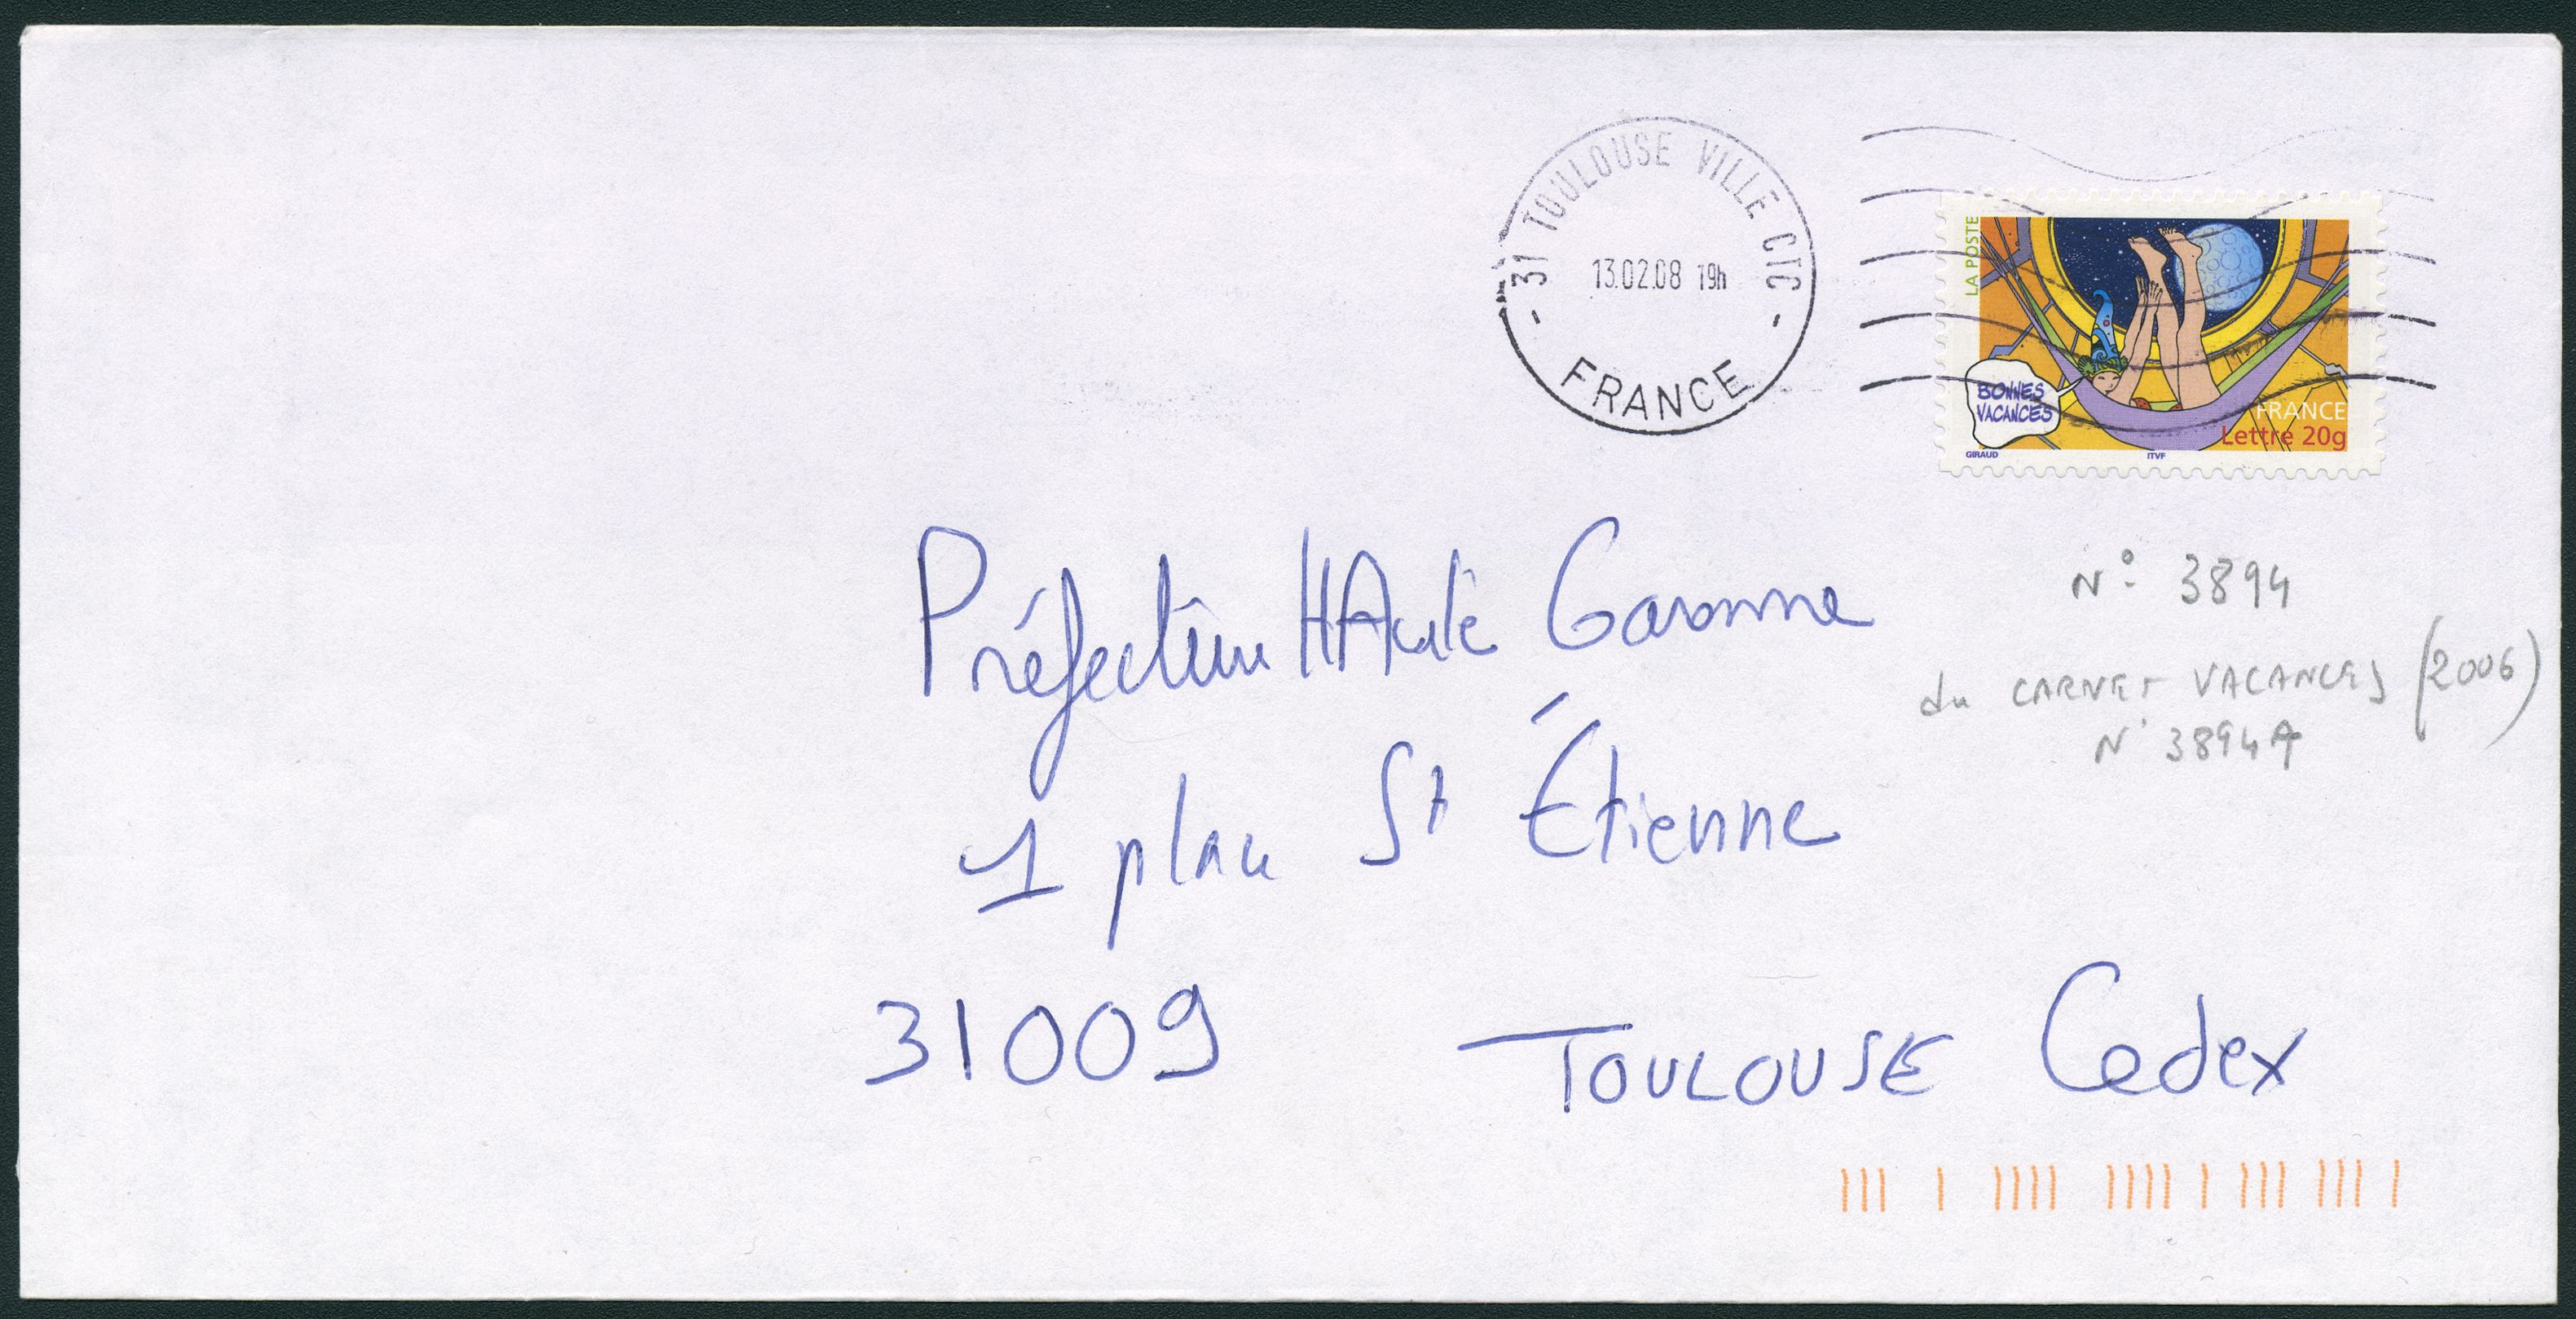 - 31 TOULOUSE VILLE CTC -
13.02.08 19h
FRANCE
LA POSTE
BONNES
VACANCES
FRANCE
Lettre 20g
GIRAUD
ITVF
N° 3894
du CARNET VACANCES (2006)
N° 3894A
Préfecture HAute Garonne
1 place St Étienne
31009 TOULOUSE Cedex